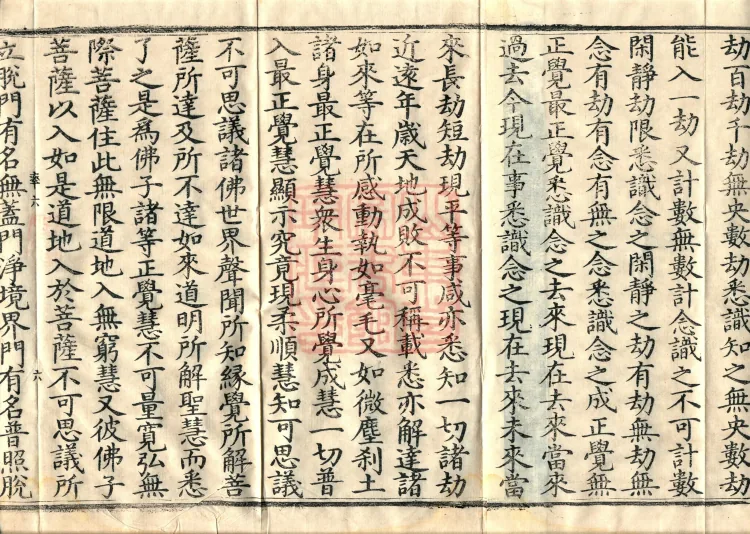 劫百劫千劫無央數劫悉識知之無央數劫
能入一劫又計數無數計念識之不可計數
閑靜劫限悉識念之閑靜之劫有劫無劫無
念有劫有念有無之念悉識念之成正覺無
正覺最正覺悉識念之去來現在去來當來
過去今現在事悉識念之現在去來未來當
來長劫短劫現平等事咸亦悉知一切諸劫
近遠年歲天地成敗不可稱載悉亦解達諸
如來等在所感動執如毫毛又如微塵刹土
諸身最正覺慧衆生身心所覺成慧一切普
入最正覺慧顯示究竟現柔順慧知可思議
不可思議諸佛世界聲聞所知緣覺所解菩
薩所達及所不達如來道明所解聖慧而悉
了之是爲佛子諸等正覺慧不可量寬弘無
際菩薩住此無限道地入無窮慧又彼佛子
菩薩以入如是道地入於菩薩不可思議所
立脫門有名無蓋門淨境界門有名普照脫